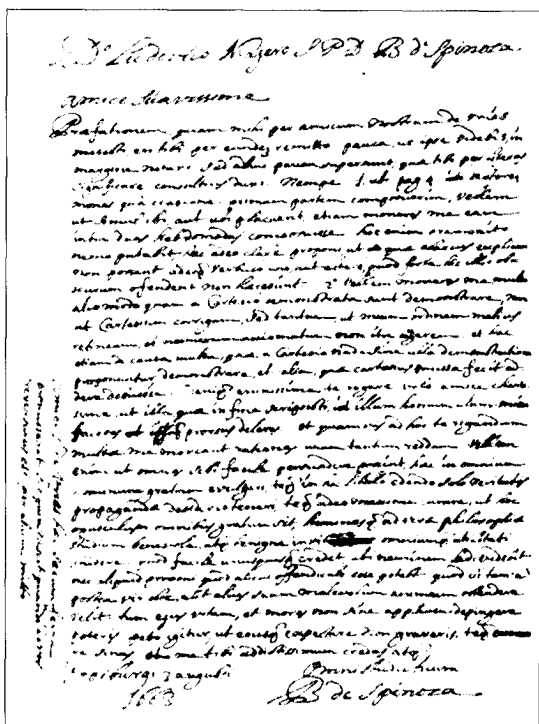 D.º Ludovico Meyero S P D B d' Spinosa.
Amice Suavissime
Præfationem, quam mihi per amicum nostrum de vries
misisti en tibi per eundem remitto pauca, ut ipse videbis, in
margine notavi sed adhuc pauca supersunt, quæ tibi per literas
significare consultius duxi. Nempe 1. ubi pag 4 lectorem
mones qua occasione primam partem composuerim, vellem
ut simul ibi aut ubi placuerit, etiam moneres me eam
intra duas hebdomadas composuisse hoc enim præmonito
nemo putabit hæc adeo clare proponi ut quæ clarius explicari
non possent adeoq verbulo uno, aut altero, quod forte hic illic ob
scurum offendent non hærebunt 2º vellem moneres me multa
alio modo quam a Cartesio demonstrata sunt demonstrare, non
ut Cartesium corrigam, sed tantum, ut meum ordinem melius
retineam, et numerum axiomatum non ita augerem. et hac
etiam de causa multa, quæ a Cartesio nude sine ulla demonstratione
proponuntur, demonstrare, et alia, quæ cartesius missa fecit ad
dere debuisse. Deniq enixissime te rogare volo amice charis
sime, ut illa quæ in fine scripsisti, in illum homunculum,
et prorsus deleas et quamvis ad hoc te rogandum
multæ me moveant rationes unam tantum reddam vellem
enim ut omnes sibi facile persuadere possint, hæc in omnium
hominum gratiam evulgari, teq in hoc libello edendo solo veritatis
propagandæ desiderio teneri, teq adeo maxime curare, ut hoc
opusculum omnibus gratum sit, hominesq ad veræ philosophiæ
studium benevole, atq benigne omniumq utilitati
quod facile unusquisq credet ubi neminem lædi viderit
nec aliquid proponi quod alicui offendiculo esse potest. quod si tamen
postea vir iste aut alius suum malevolum animum ostendere
velit. tum ejus vitam, et mores non sine applausu depingere
poteris peto igitur ut eousq expectare non graveris, teq
sinas et me tibi addictissimum credas atq
Voorburgi 3 augusti omni studio tuum
1663 B de Spinosa